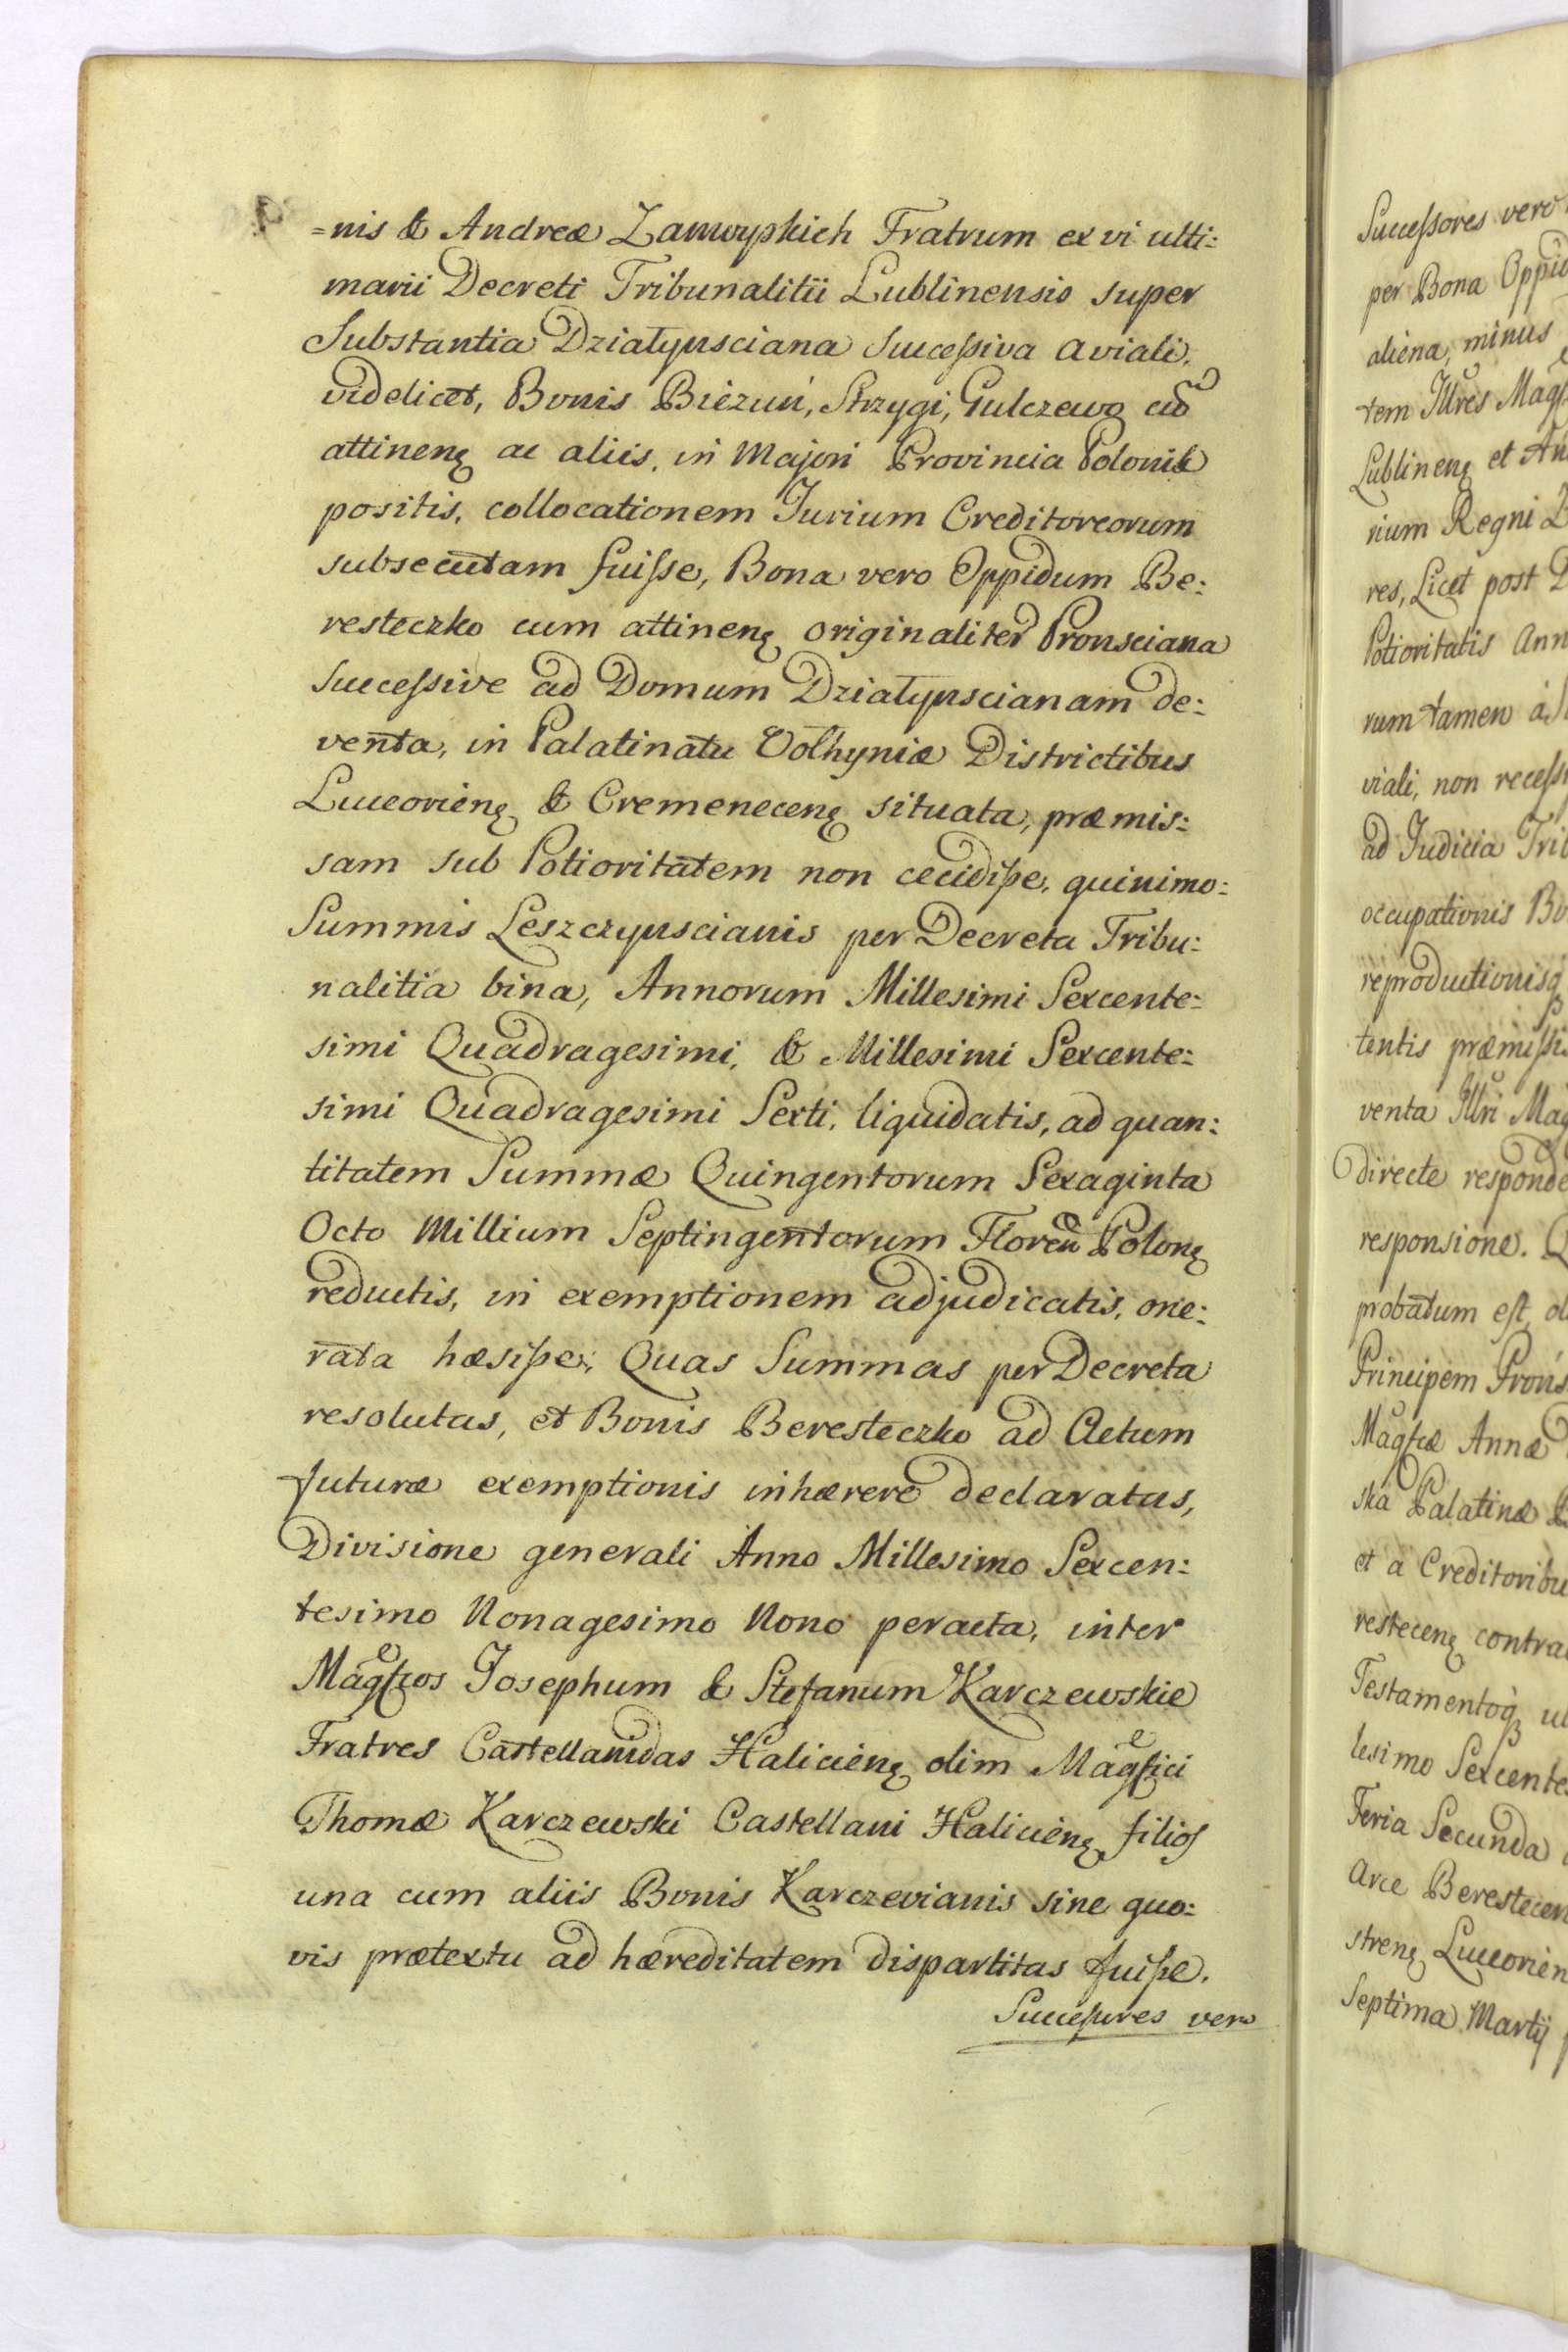 =nis & Andreæ Zamoyskich Fratrum ex vi ulti:
marii Decreti Tribunalitii Lublinensis super
Substantia Dziatynsciana Successiva aviali.
videlicet, Bonis Biezuń, Strzygi, Gulczewo cũ
attinenę ac aliis, in Majori Provincia Poloniæ
positis, collocationem Jurium Creditoreorum
subsecutam fuisse, Bona vero Oppidum Be:
resteczko cum attinenę originaliter Pronsciana
Successive ad Domum Dziatynscianam de:
venta, in Palatinatu Volhyniæ Districtibus
Luceorienę & Cremenecenę situata, præmis:
sam sub Potioritatem non cecidisse, quinimo:
Summis Leszczynscianis per Decreta Tribu:
nalitia bina, Annorum Millesimi Sexcente:
simi Quadragesimi, & Millesimi Sexcente:
simi Quadragesimi Sexti, liquidatis, ad quan:
titatem Summæ Quingentorum Sexaginta
Octo Millium Septingentorum Floreñ Polonę
reductis, in exemptionem adjudicatis, one:
rata hæsisse; Quas Summas per Decreta
resolutas, et Bonis Beresteczko ad Actum
futuræ exemptionis inhærere declaratas,
Divisione generali Anno Millesimo Sexcen:
tesimo Nonagesimo Nono peracta, inter
Magfcos Josephum & Stefanum Karczewskie
Fratres Castellanidas Halicienę olim Magfici
Thomæ Karczewski Castellani Halicienę filios
una cum aliis Bonis Karczevianis sine quo:
vis prætextu ad hæreditatem dispartitas fuisse.
Successores vero
Successores vero
per Bona
aliena, minus
tem Jllres
Lublinenę et
rium Regni
res, Licet post
Potioritatis
rum tamen
viali, non
ad Judicia
occupationis
tentis
venta Jllri
directe
responsione.
probatum est
Principem
Magfcæ Annæ
ska Palatinæ
et a
restecenę
Testamentoq
lesimo
Feria Secunda
Arce
strenę
Septima Martij